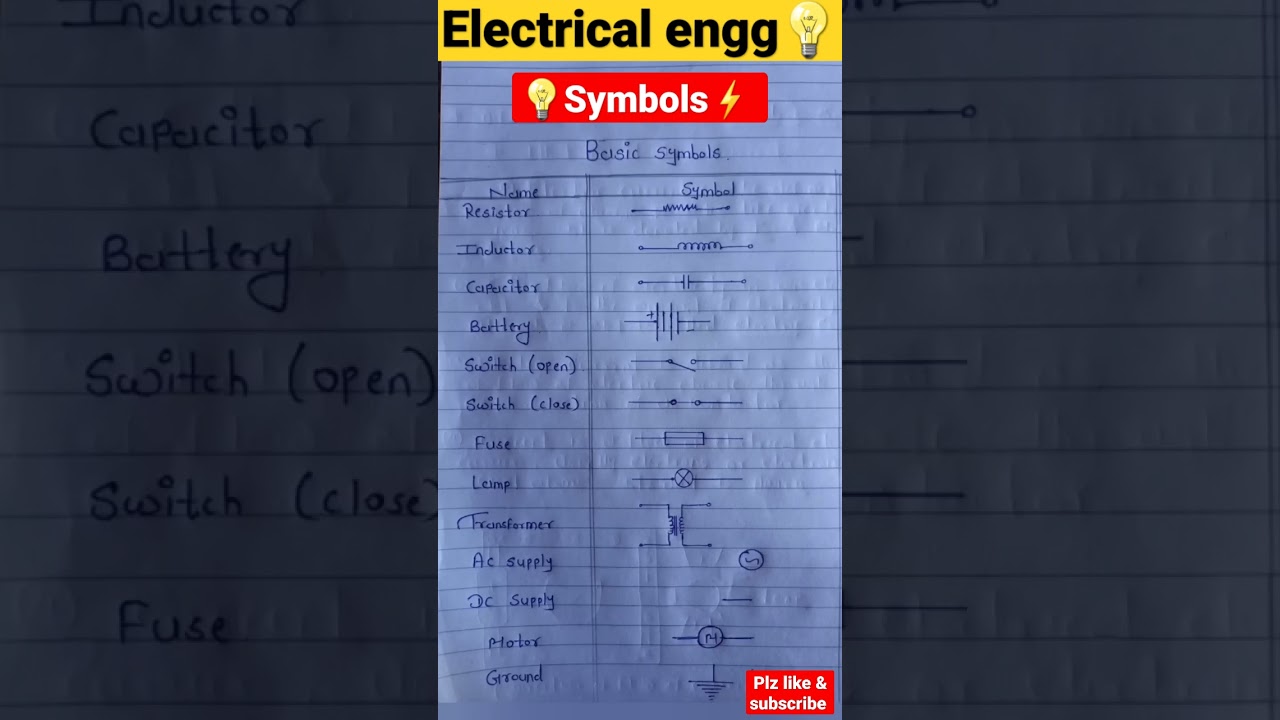 Electrical engg
Symbols
Basic symbols.
Name Symbol
Resistor
Inductor
Capacitor
Battery + -
Switch (open)
Switch (close)
Fuse
Lamp
Transformer
Ac supply
DC supply
Motor M
Ground
Plz like &
subscribe
Inductor
Capacitor
Battery
Switch (open)
Switch (close)
Fuse